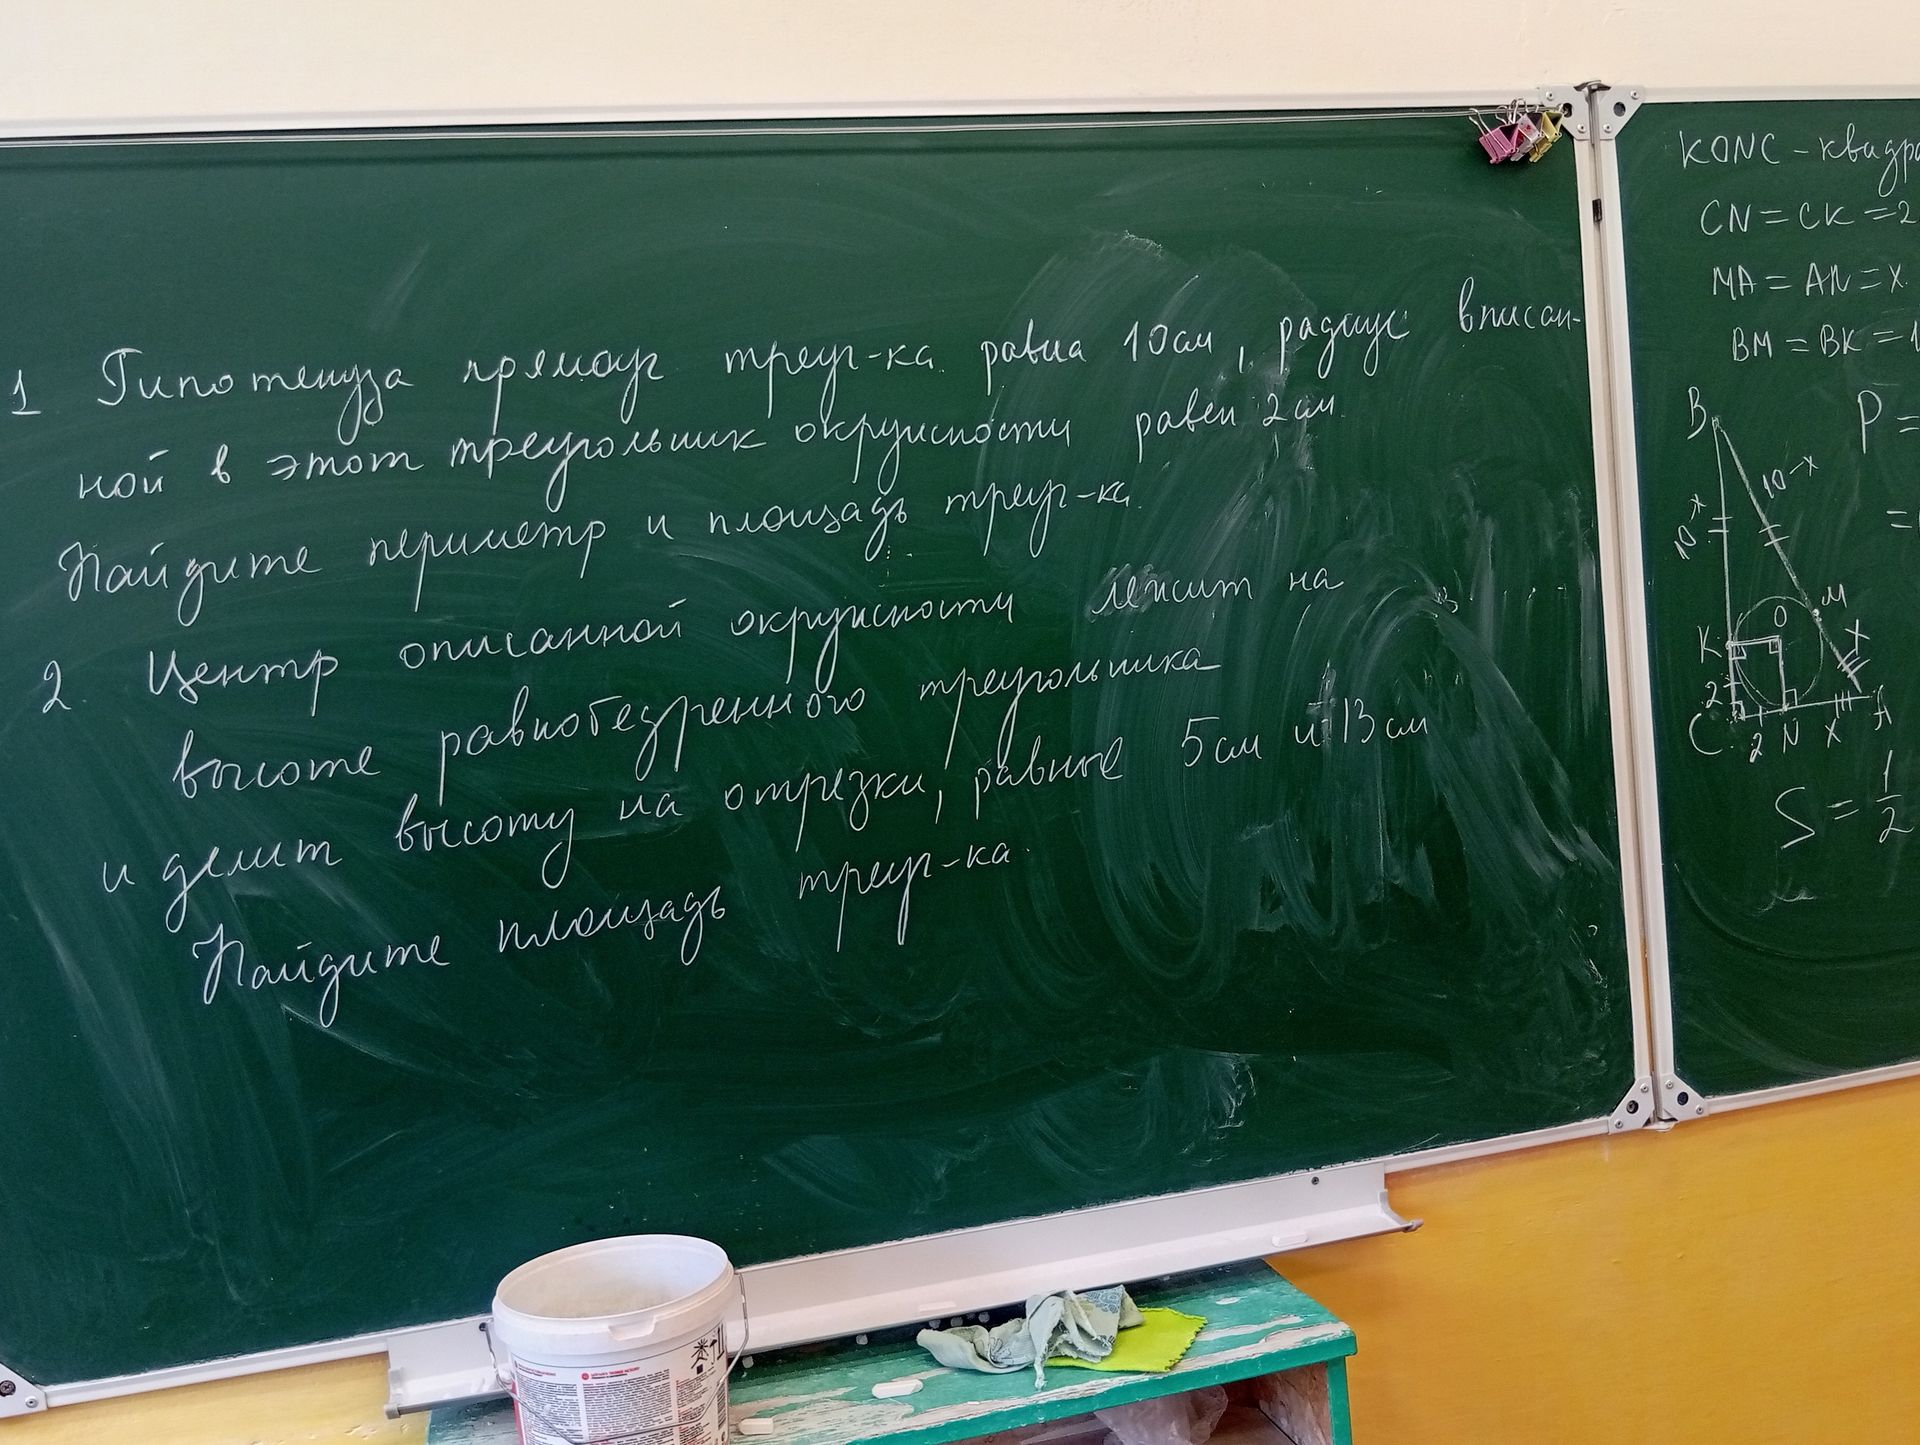 1 Гипотенуза прямоуг треуг-ка равна 10см, радиус вписан-
ной в этот треугольник окружности равен 2см.
Найдите периметр и площадь треуг-ка.
2. Центр описанной окружности лежит на
высоте равнобедренного треугольника
и делит высоту на отрезки, равные 5см и 13см
Найдите площадь треуг-ка.
KONC - квадра
CN = CK = 2
MA = AN = x.
BM = BK = 1
B
P =
10-x
10-x
=
M
O
K
x
2
C
2 N x A
S = 1/2